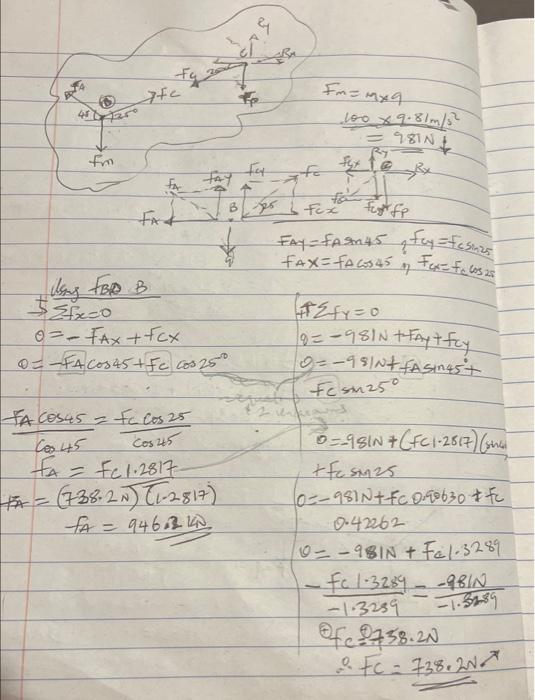 Ry
A
C
Rx
Fc
Fp
FA
Fc
B
45
25°
Fm
Fm = m x g
100 x 9.81m/s²
= 981N ↓
FA
FAy
Fcy
Fc
Fcx
Ry
C
Rx
FA
B
25
Fcx
Fcy
Fp
FAy = FA sin45, Fcy = Fc sin25
FAx = FA cos45, Fcx = Fc cos25
Using FBD B
→ Σfx=0
0 = - FAx + Fcx
0 = -FA cos45 + Fc cos25°
FA cos45 = Fc cos25
cos45 cos45
FA = Fc 1.2817
FA = (738.2N)(1.2817)
FA = 946.2 kN
+↑ Σfy = 0
0 = -981N + FAy + Fcy
0 = -981N + FA sin45° +
Fc sin25°
2 unknowns
0 = -981N + (Fc 1.2817)(sin45
+ Fc sin25
0 = -981N + Fc 0.90630 + Fc
0.42262
0 = -981N + Fc 1.3289
- Fc 1.3289 = -981N
-1.3289 -1.3289
Fc = 738.2N
∴ Fc = 738.2N ↗